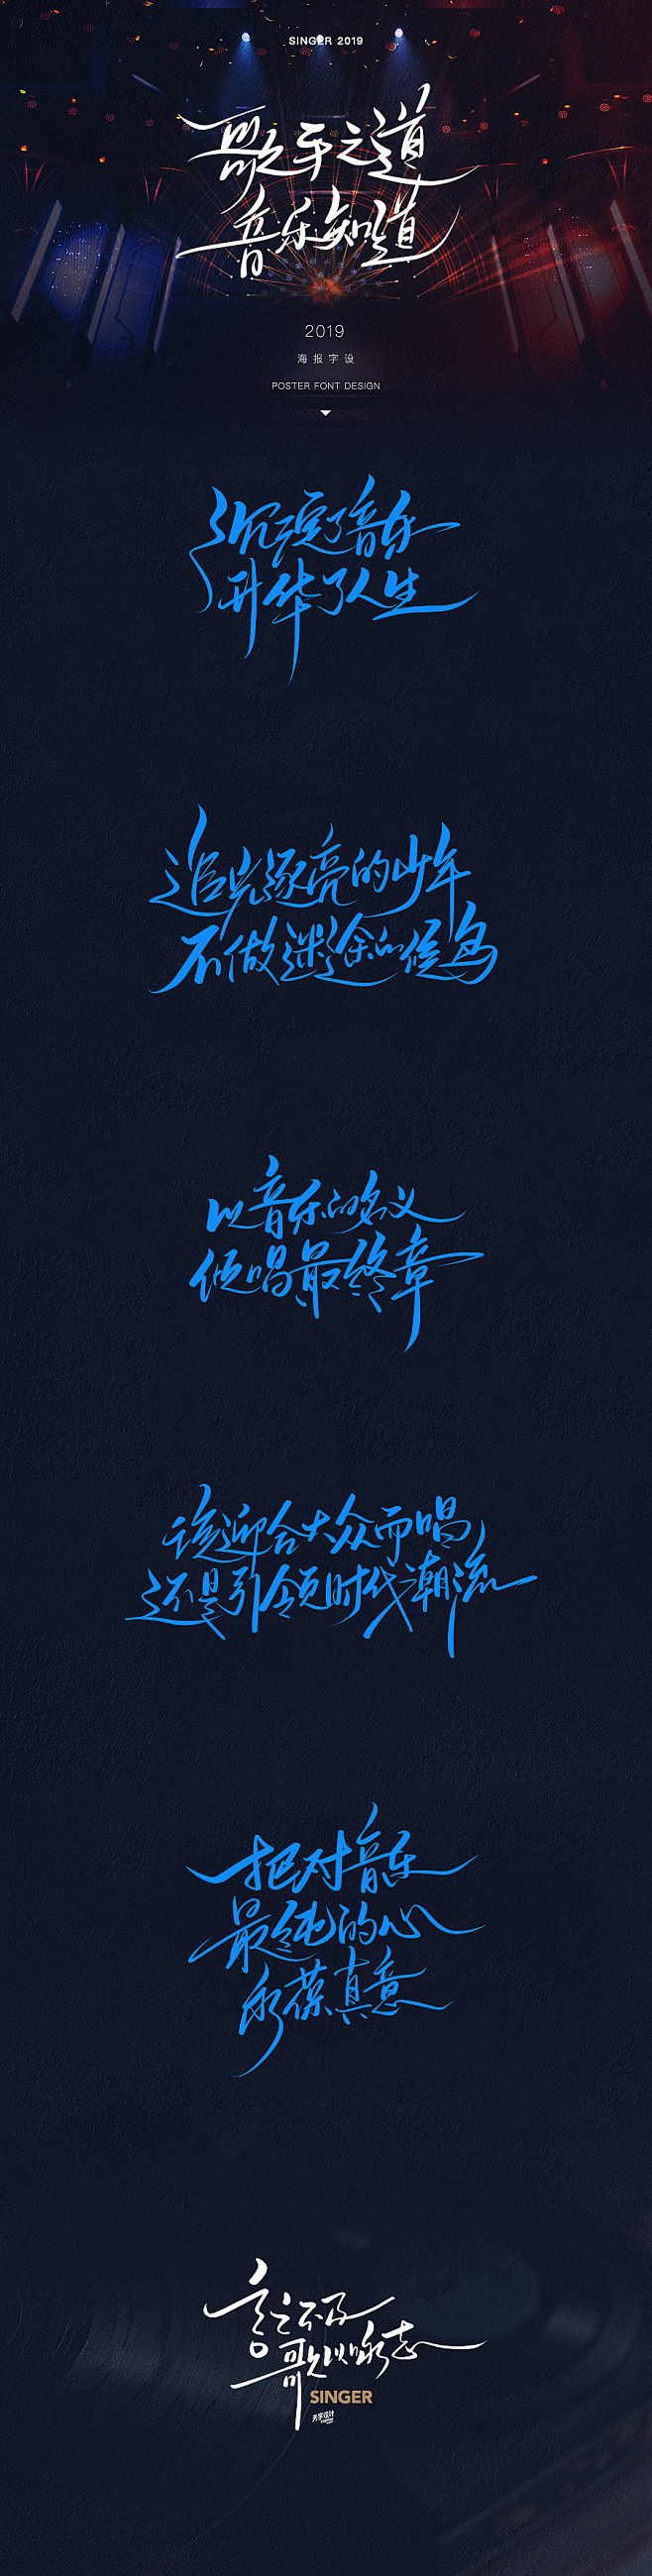 SINGER 2019
歌手之道
音乐知道
2019
海报字设
POSTER FONT DESIGN
沉淀了音乐
升华了人生
追光逐亮的少年
不做迷途的候鸟
以音乐的名义
倾唱最终章
该迎合大众而唱
还是引领时代潮流
把对音乐
最纯的心
永葆真意
言之不及
歌以咏志
SINGER